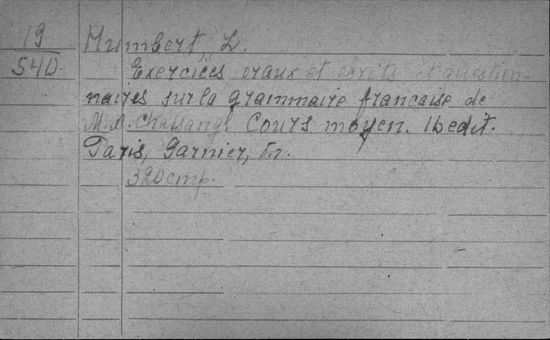 19
540.
Humbert, L.
Exercices oraux et écrits et question-
naires sur la grammaire francaise de
M.A. Chassang. Cours moyen. 16 edit.
Paris, Garnier, Гг.
320 стр.